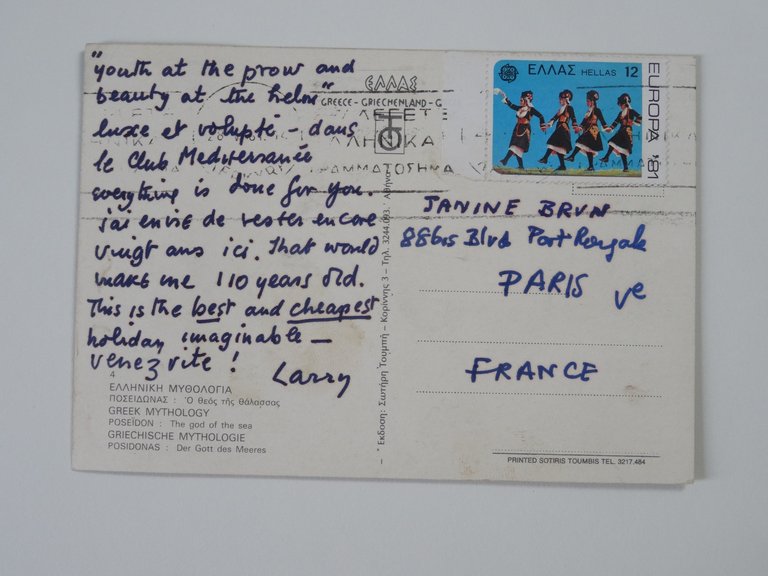 "youth at the prow and
beauty at the helm"
luxe et volupté – dans
le Club Mediterranée
everything is done for you.
j'ai envie de rester encore
vingt ans ici. That would
make me 110 years old.
This is the best and cheapest
holiday imaginable –
venez vite !
Larry
4
ΕΛΛΗΝΙΚΗ ΜΥΘΟΛΟΓΙΑ
ΠΟΣΕΙΔΩΝΑΣ : Ὁ θεός τῆς θάλασσας
GREEK MYTHOLOGY
POSEÏDON : The god of the sea
GRIECHISCHE MYTHOLOGIE
POSIDONAS : Der Gott des Meeres
* Εκδοση: Σωτήρη Τουμπή – Κορίννης 3 – Τηλ. 3244.093. Αθήνα
ΕΛΛΑΣ
GREECE - GRIECHENLAND - G
ΕΛΛΑΣ HELLAS 12
EUROPA '81
JANINE BRUN
Blvd Port Royale
PARIS Ve
FRANCE
PRINTED SOTIRIS TOUMBIS TEL. 3217.484